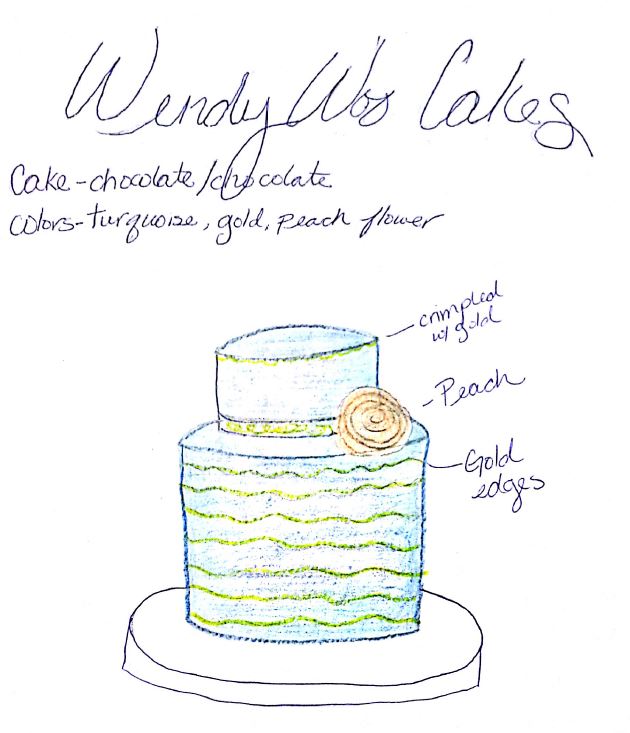 Wendy Woo Cakes
Cake-chocolate/chocolate
colors-turquoise, gold, peach flower
crimpled
w/ gold
-Peach
Gold
edges